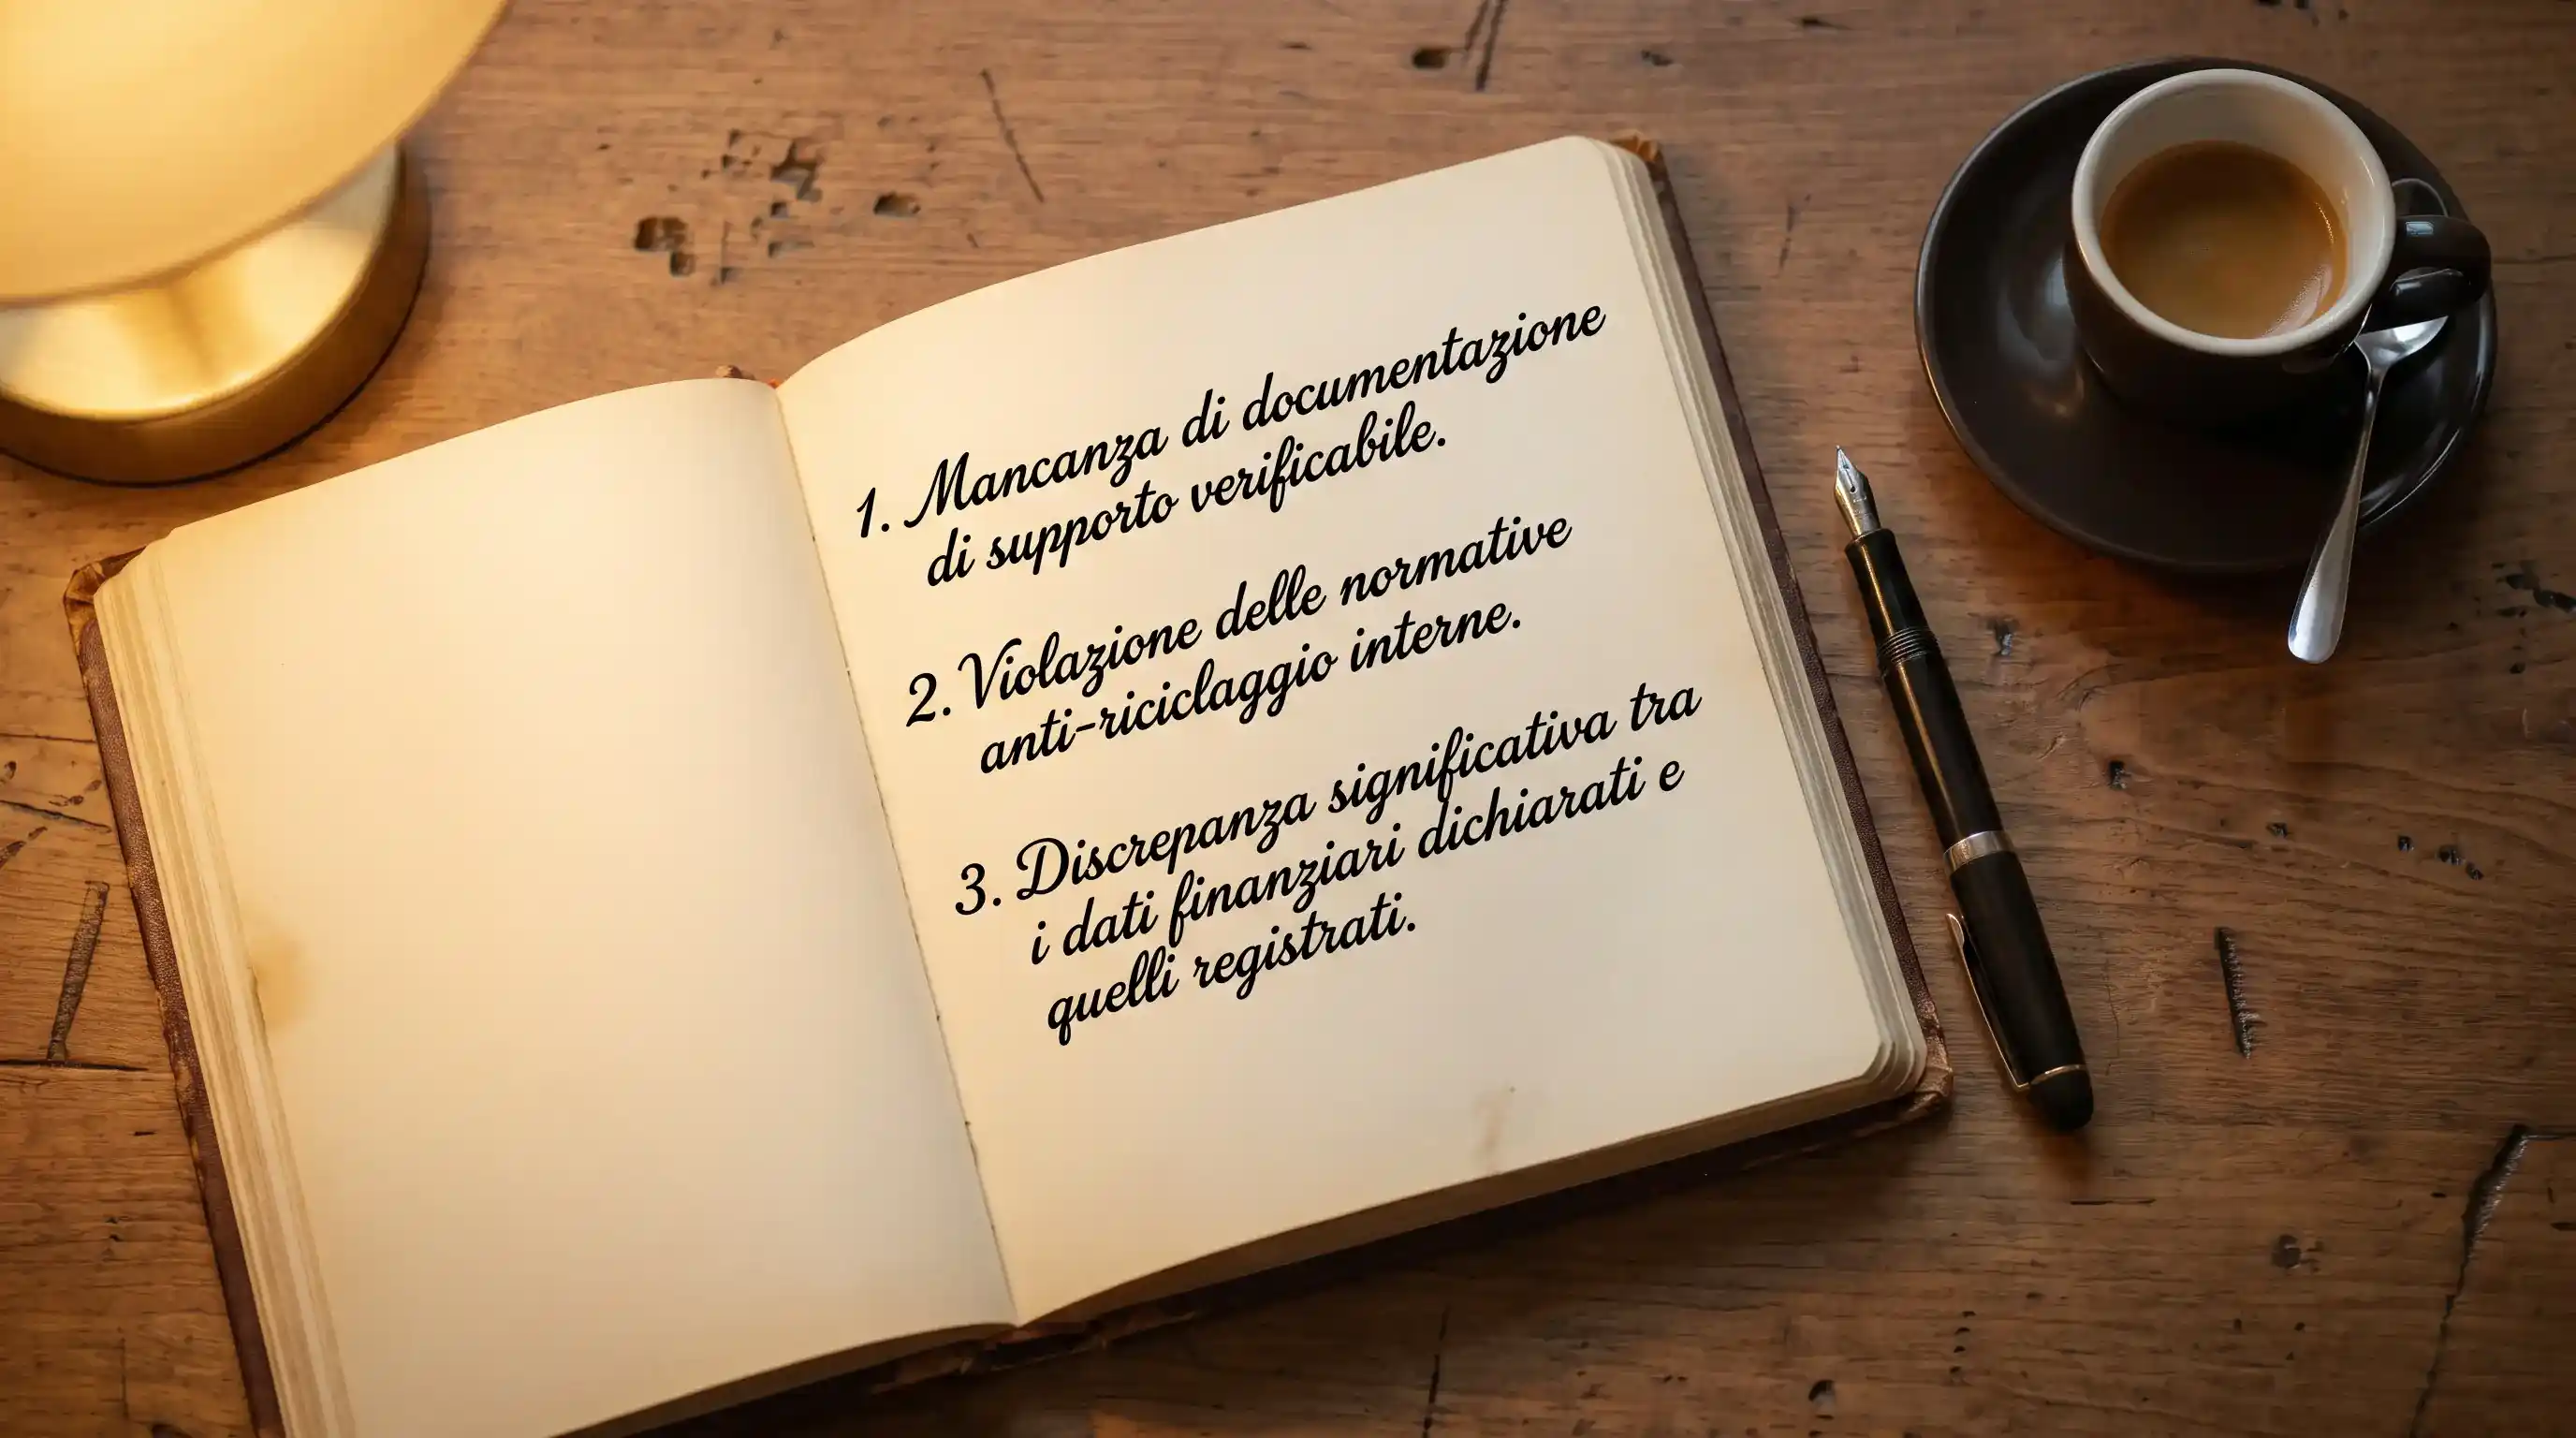 1. Mancanza di documentazione
di supporto verificabile.
2. Violazione delle normative
anti-riciclaggio interne.
3. Discrepanza significativa tra
i dati finanziari dichiarati e
quelli registrati.